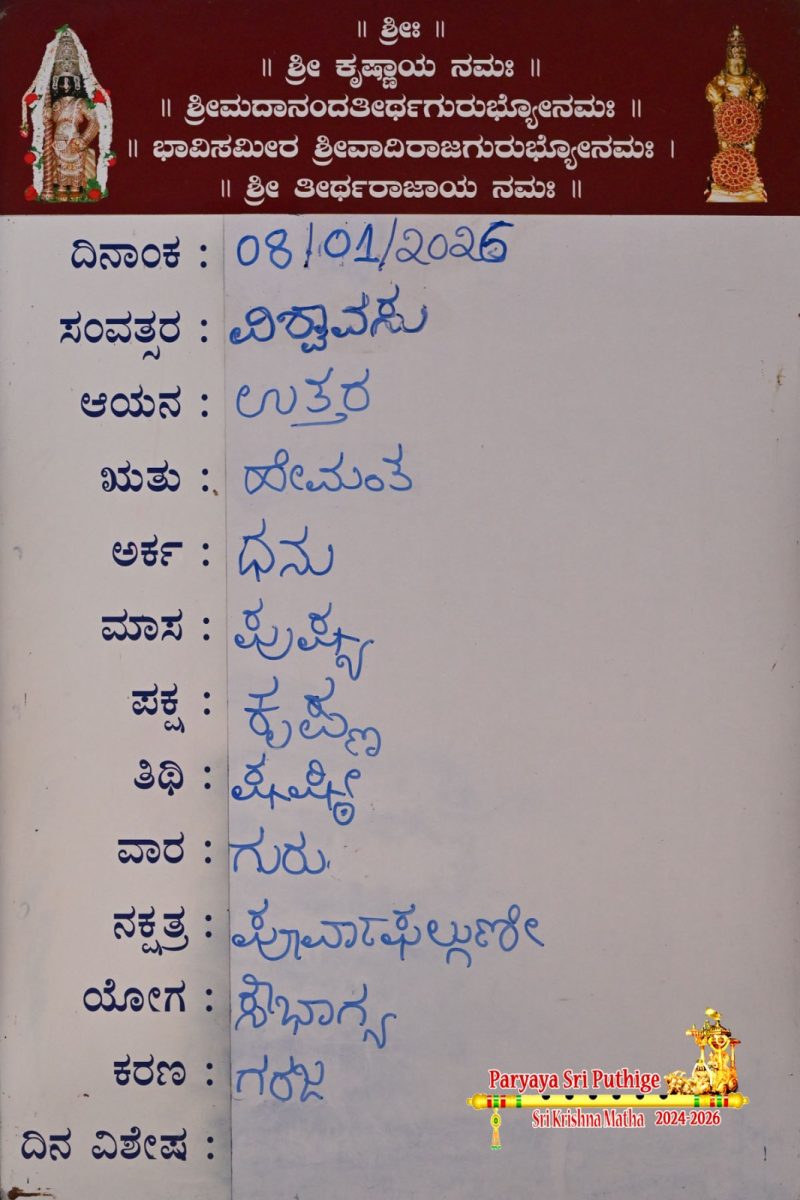 ॥ ಶ್ರೀಃ ॥
॥ ಶ್ರೀ ಕೃಷ್ಣಾಯ ನಮಃ ॥
॥ ಶ್ರೀಮದಾನಂದತೀರ್ಥಗುರುಭ್ಯೋನಮಃ ॥
॥ ಭಾವಿಸಮೀರ ಶ್ರೀವಾದಿರಾಜಗುರುಭ್ಯೋನಮಃ ।
॥ ಶ್ರೀ ತೀರ್ಥರಾಜಾಯ ನಮಃ ॥
ದಿನಾಂಕ : 08/01/2026
ಸಂವತ್ಸರ : ವಿಶ್ವಾವಸು
ಆಯನ : ಉತ್ತರ
ಋತು : ಹೇಮಂತ
ಅರ್ಕ : ಧನು
ಮಾಸ : ಪುಷ್ಯ
ಪಕ್ಷ : ಕೃಷ್ಣ
ತಿಥಿ : ಷಷ್ಠೀ
ವಾರ : ಗುರು
ನಕ್ಷತ್ರ : ಪೂರ್ವಾಫಲ್ಗುಣೀ
ಯೋಗ : ಸೌಭಾಗ್ಯ
ಕರಣ : ಗರಜ
ದಿನ ವಿಶೇಷ :
Paryaya Sri Puthige
Sri Krishna Matha 2024-2026